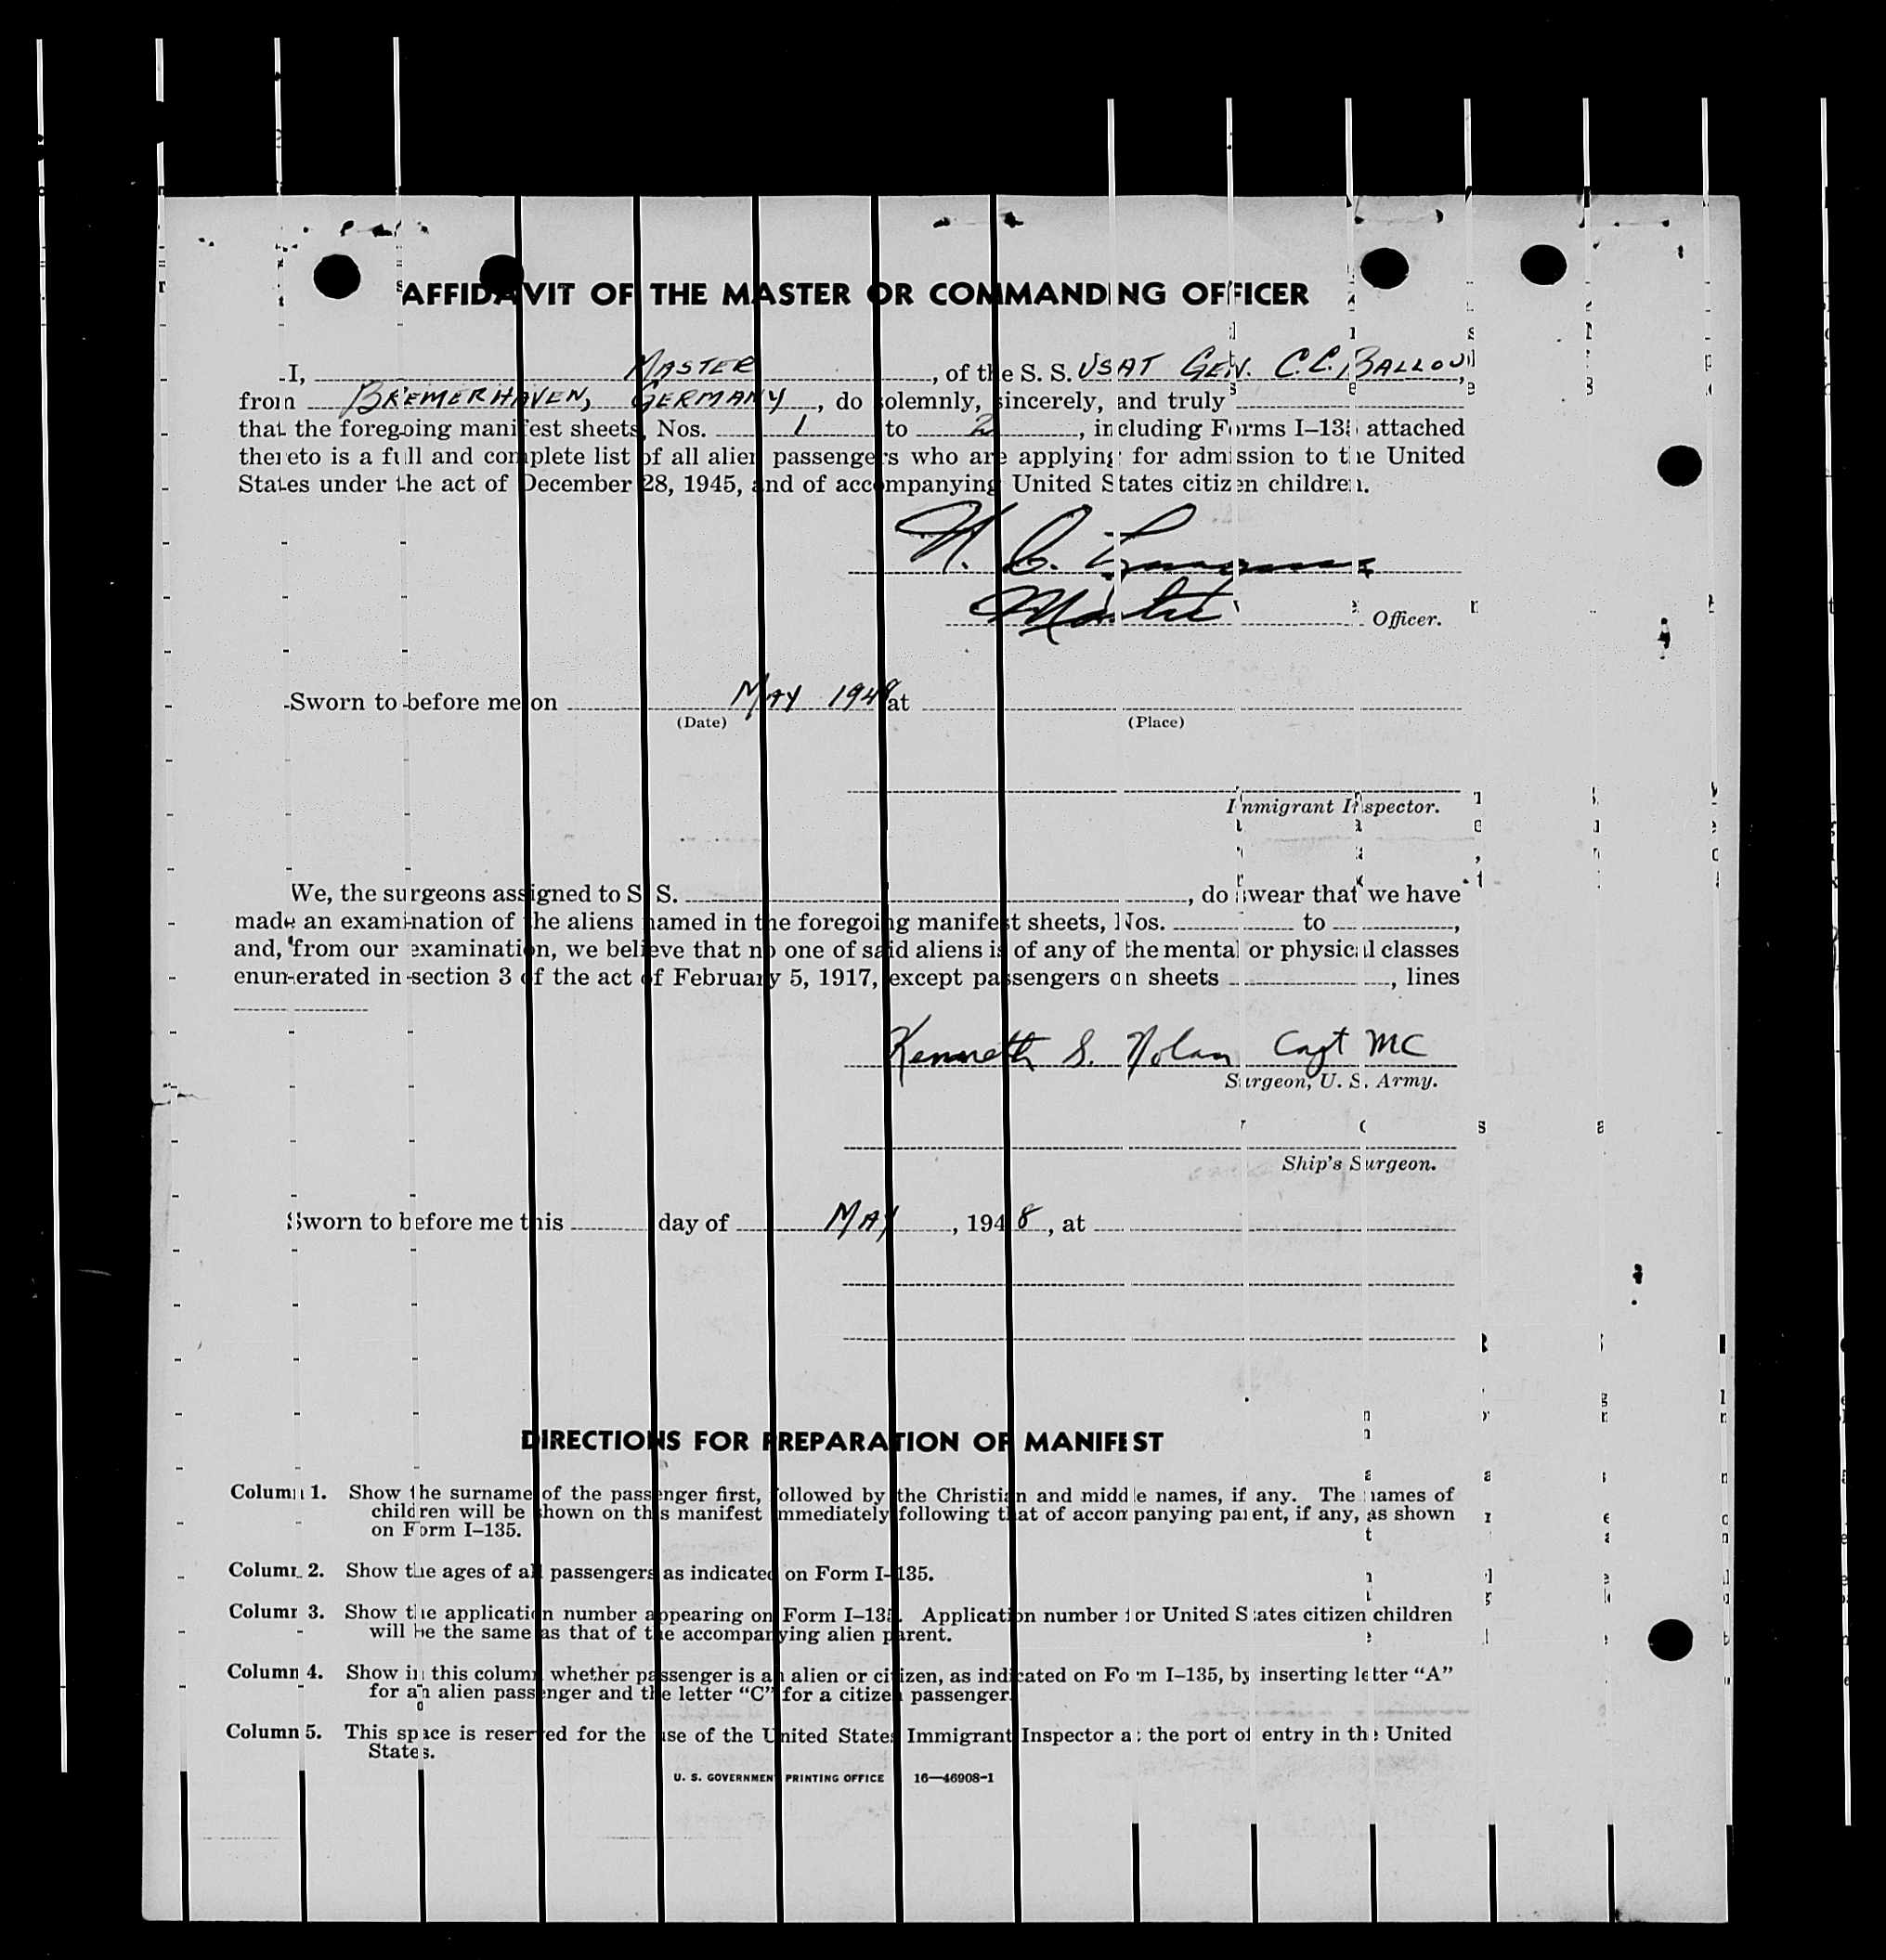 AFFIDAVIT OF THE MASTER OR COMMANDING OFFICER
I, MASTER, of the S. S. USAT GEN. C.C. BALLOU,
from BREMERHAVEN, GERMANY, do solemnly, sincerely, and truly
that the foregoing manifest sheets, Nos. 1 to 2, including Forms I–135 attached
thereto is a full and complete list of all alien passengers who are applying for admission to the United
States under the act of December 28, 1945, and of accompanying United States citizen children.
Master Officer.
Sworn to before me on MAY 1948 at
(Date) (Place)
Immigrant Inspector.
We, the surgeons assigned to S. S. , do swear that we have
made an examination of the aliens named in the foregoing manifest sheets, Nos. to ,
and, from our examination, we believe that no one of said aliens is of any of the mental or physical classes
enumerated in section 3 of the act of February 5, 1917, except passengers on sheets , lines
Kenneth S. Nolan Capt MC
Surgeon, U. S. Army.
Ship's Surgeon.
Sworn to before me this day of MAY, 1948, at
DIRECTIONS FOR PREPARATION OF MANIFEST
Column 1. Show the surname of the passenger first, followed by the Christian and middle names, if any. The names of
children will be shown on this manifest immediately following that of accompanying parent, if any, as shown
on Form I–135.
Column 2. Show the ages of all passengers as indicated on Form I–135.
Column 3. Show the application number appearing on Form I–135. Application number for United States citizen children
will be the same as that of the accompanying alien parent.
Column 4. Show in this column whether passenger is an alien or citizen, as indicated on Form I–135, by inserting letter “A”
for an alien passenger and the letter “C” for a citizen passenger.
Column 5. This space is reserved for the use of the United States Immigrant Inspector at the port of entry in the United
States.
U. S. GOVERNMENT PRINTING OFFICE 16—46908-1